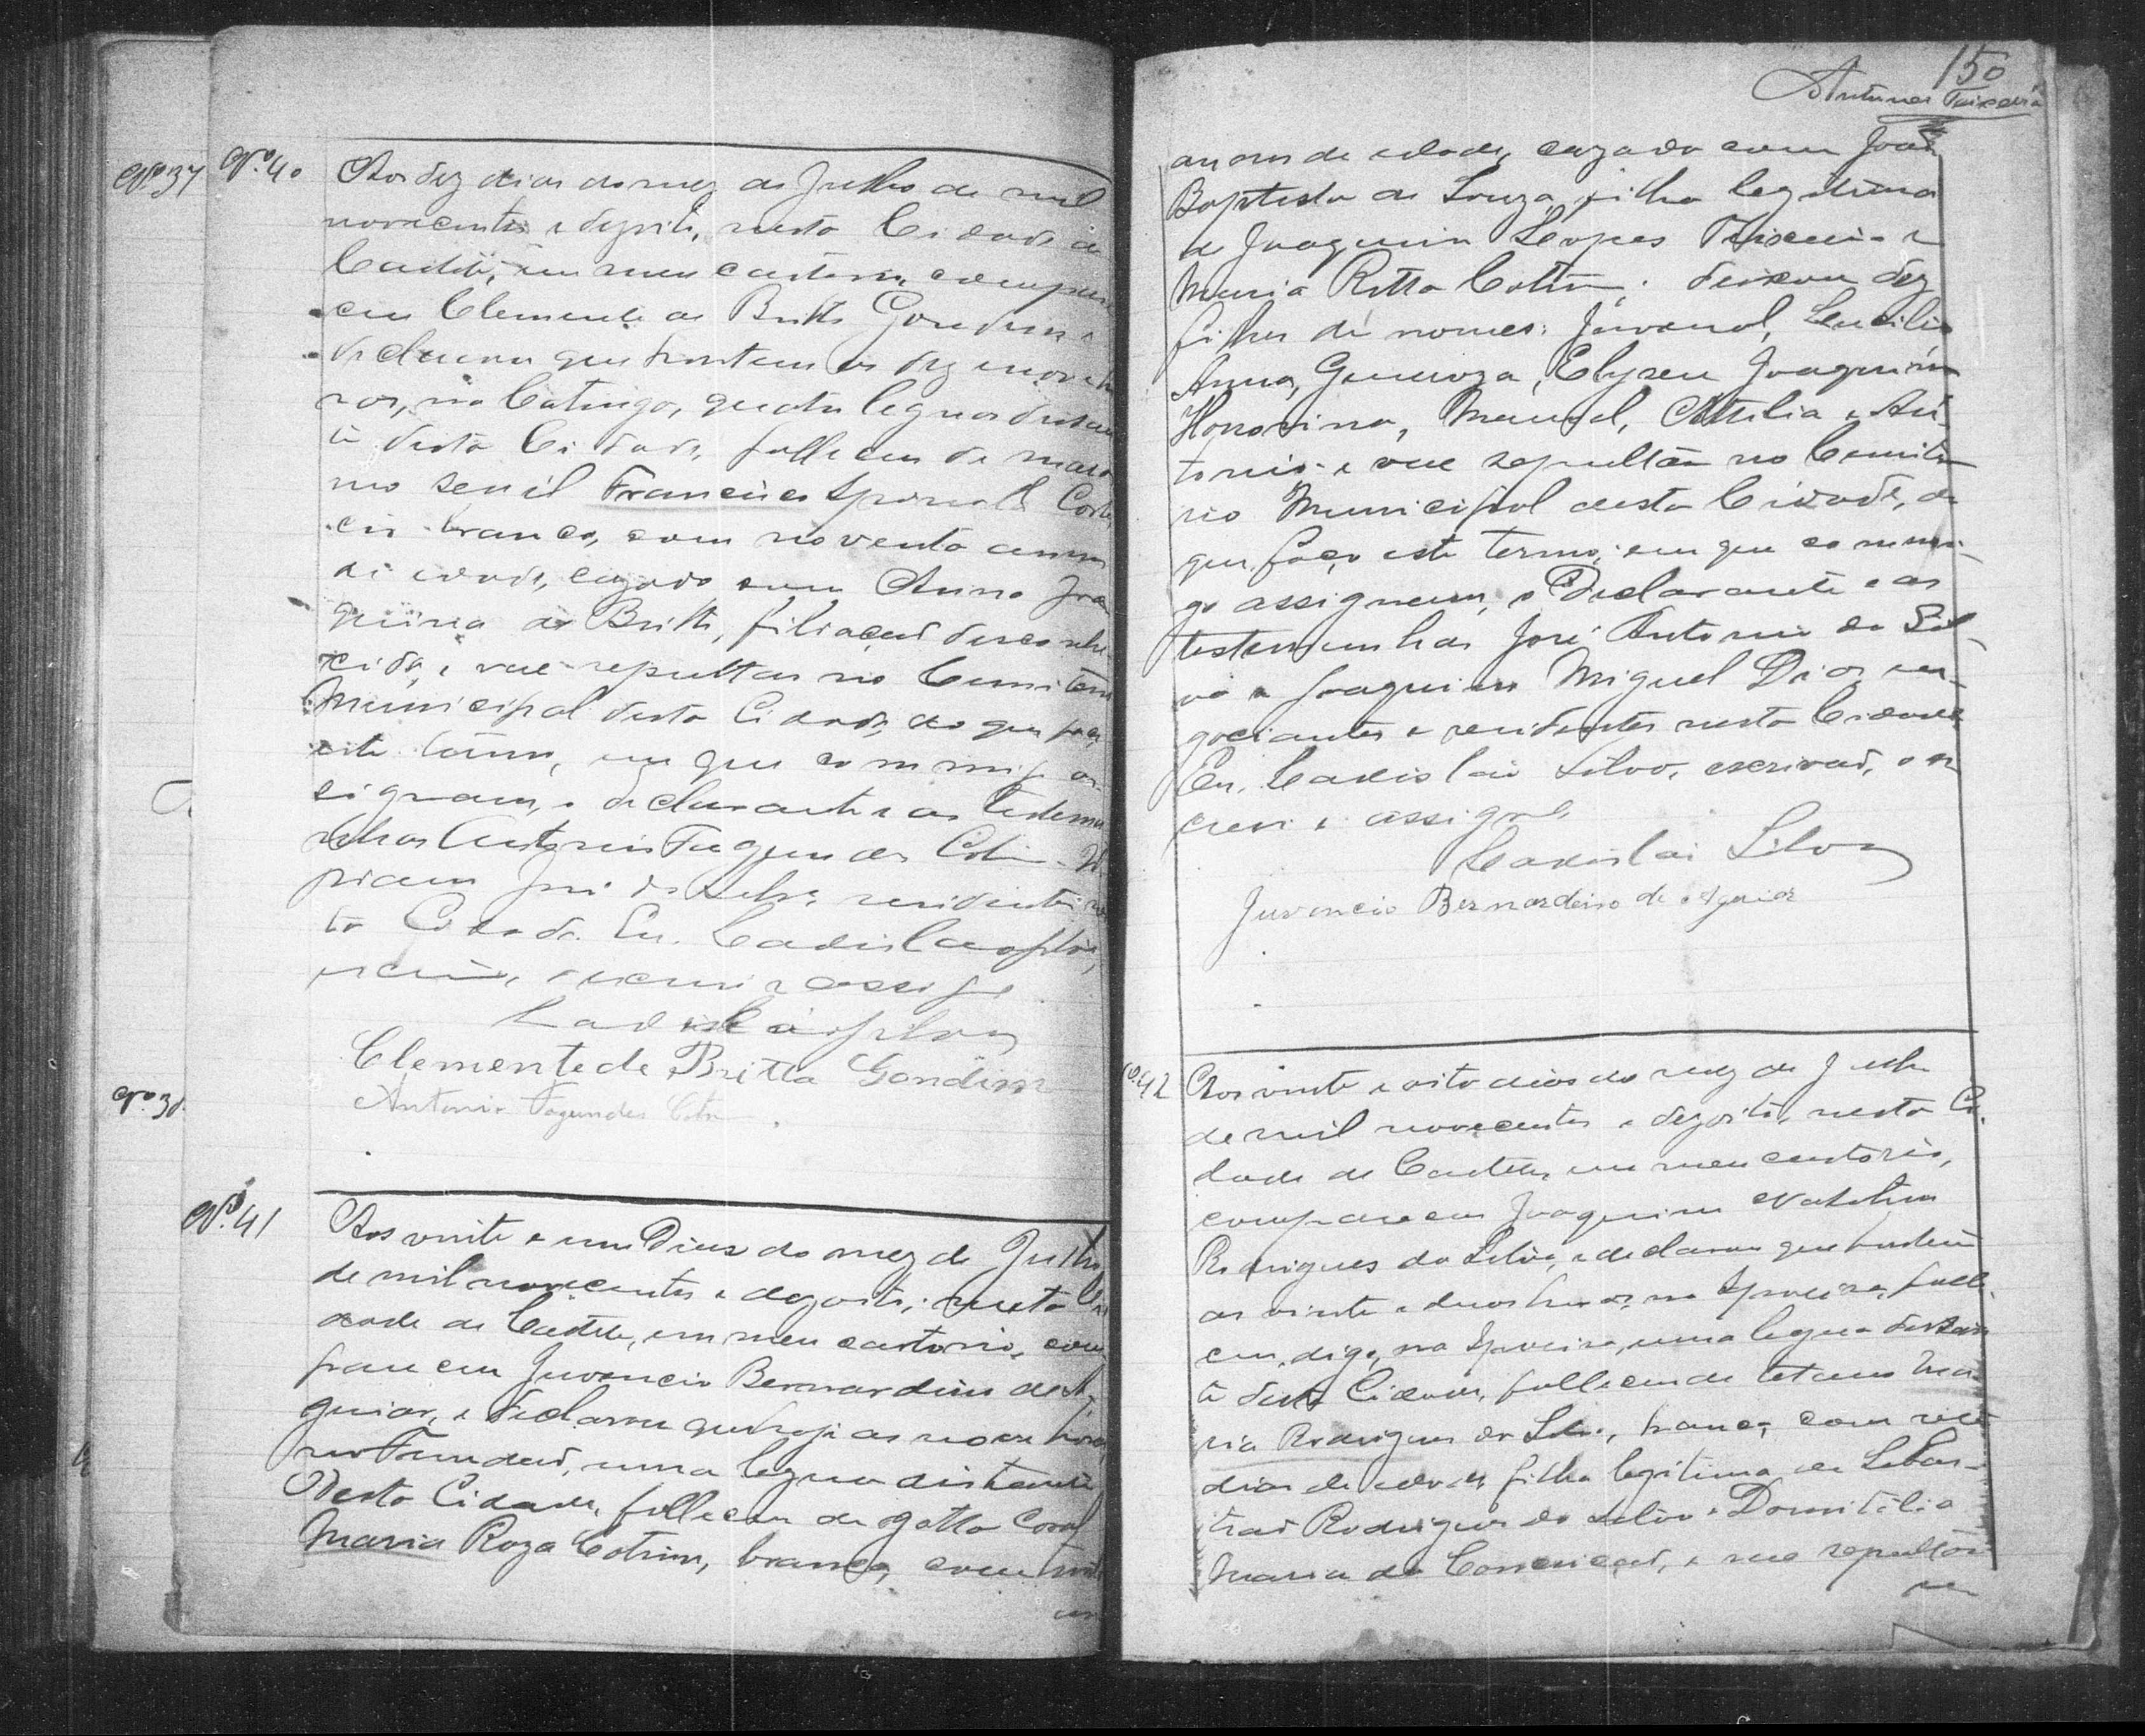 Nº 37
Nº 38
Nº 40
Aos dez dias do mez de Julho de mil
novecentos e dezoito, nesta Cidade de
Caeteté, em meu cartorio, compare
ceu Clemente de Britto Gondim e
declarou que hontem as dez e nove ho
ras, na Catinga, quatro leguas distan
te desta Cidade, falleceu de maras
mo senil Francisco
branco, com noventa annos
de idade, cazado com Anna Joa
quina de Britto, filiação desconhe
cida, e vae sepultar no Cemiterio
Municipal desta Cidade, do que faço
este termo, em que commigo as
signam, o declarante e as testemu
nhas Antonio Fagundes Cotrim
José da Silva, residentes nes
ta Cidade. Eu, Ladislao Silva,
escrivão, o escrevi e assigno
Ladislao Silva
Clemente de Britto Gondim
Antonio Fagundes Cotrim
Nº 41
Aos vinte e um dias do mez de Julho
de mil novecentos e dezoito, nesta Ci
dade de Caeteté, em meu cartorio, com
pareceu Juvencio Bernardino de A
guiar, e declarou que hoje as nove horas
no Fundão, uma legua distante
desta Cidade, falleceu de gotta coral
Maria Roza Cotrim, branca, com trinta
150
Antunes Teixeira
annos de idade, cazada com João
Baptista de Souza, filha legitima
de Joaquim Lopes Teixeira e
Maria Ritta Cotrim; deixou dez
filhos de nomes: Juvenal,
Anna, Generoza, Elyseu Joaquim
Honorina, Manoel, Attilia e An
tonio; e vae sepultar no Cemite
rio Municipal desta Cidade, do
que faço este termo, em que commi
go assignam, o Declarante e as
testemunhas José Antonio da Sil
va e Joaquim Miguel Dias, ne
gociantes e residentes nesta Cidade
Eu, Ladislao Silva, escrivão, o es
crevi e assigno
Ladislao Silva
Juvencio Bernardino de Aguiar
Nº 42
Aos vinte e oito dias do mez de Julho
de mil novecentos e dezoito, nesta Ci
dade de Caeteté, em meu cartorio,
compareceu Joaquim
Rodrigues da Silva, e declarou que hontem
as vinte e duas horas, na falle
ceu, digo, na uma legua distan
te desta Cidade, falleceu de tetano Ma
ria Rodrigues da Silva, branca, com sete
dias de idade, filha legitima de Sebas
tião Rodrigues da Silva e Domitilia
Maria da Conceição, e vae sepultar